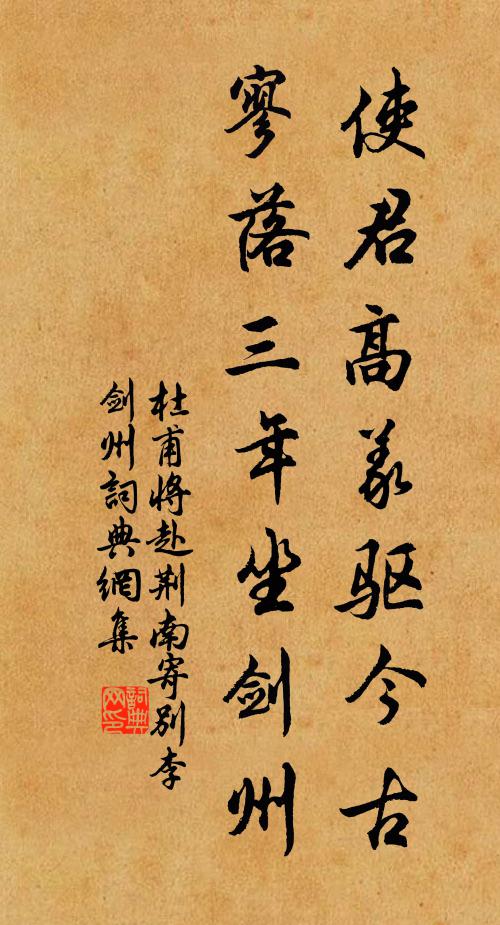 使君高義驱今古
寥落三年坐剑州
杜甫將赴荆南寄别李
剑州詞典網集
詞典网印